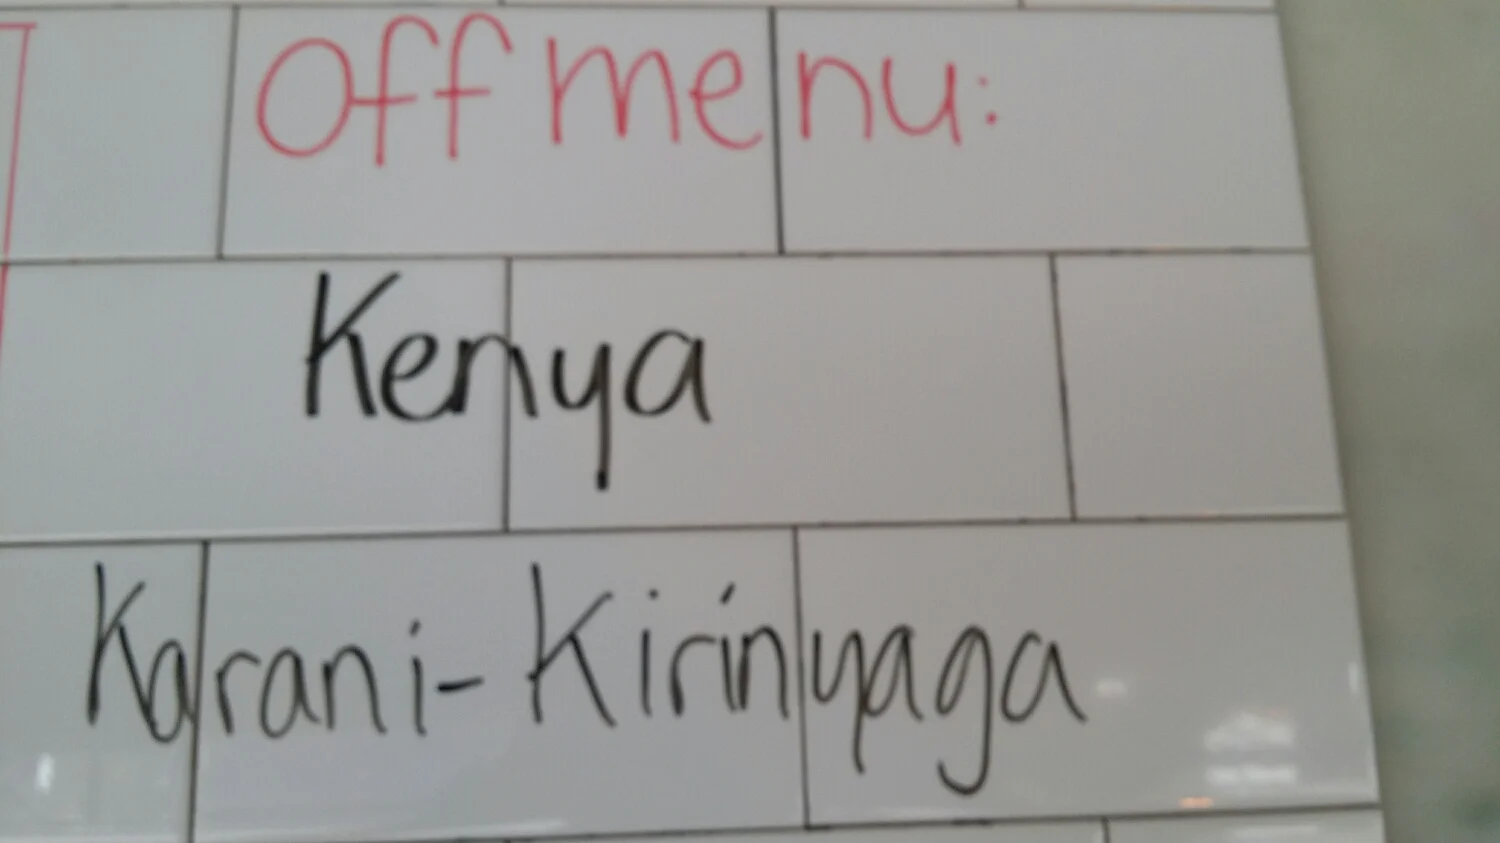 Off menu:
Kenya
Karani-Kirinyaga